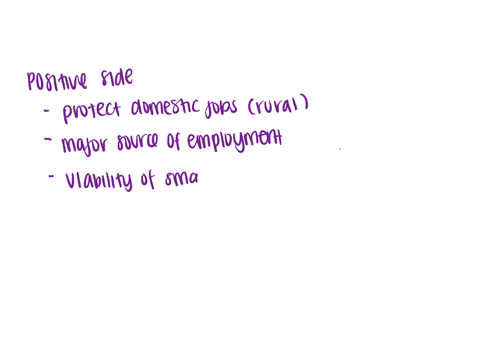 Positive side
- protect domestic jobs (rural)
- major source of employment
- viability of sma